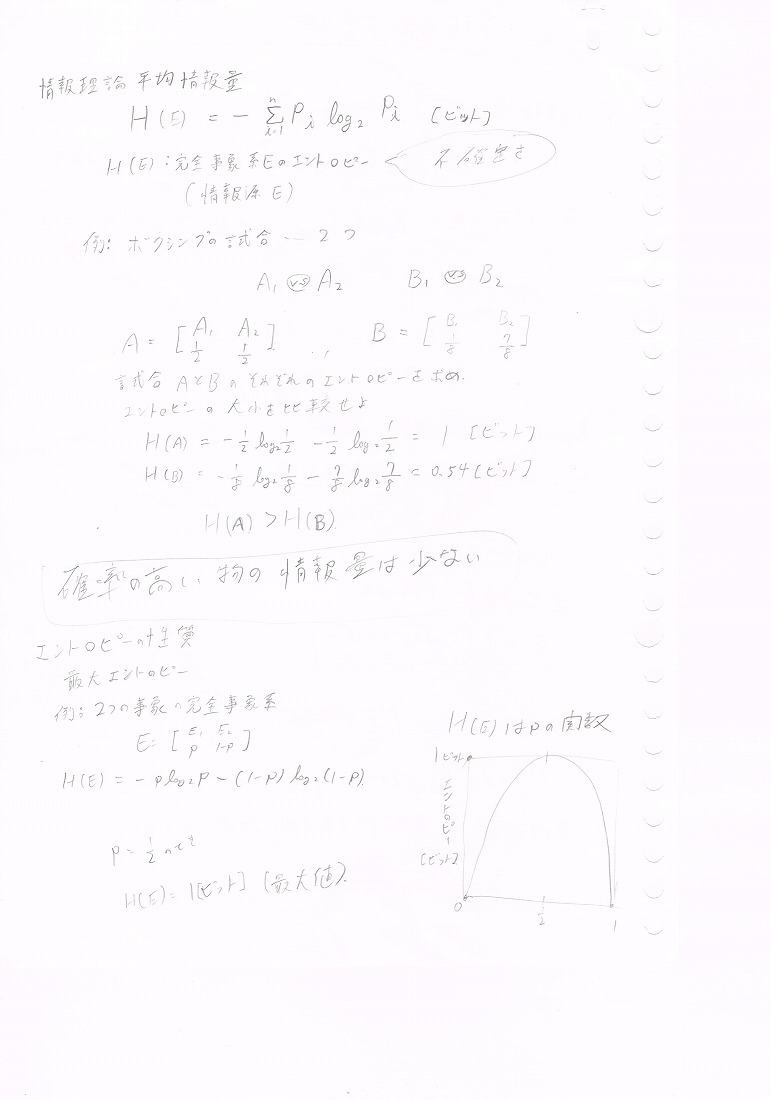 情報理論 平均情報量
H(E) = - Σ_{i=1}^{n} P_i log₂ P_i [ビット]
H(E):完全事象系Eのエントロピー
不確定さ
(情報源E)
例:ボクシングの試合 … 2つ
A₁ vs A₂  B₁ vs B₂
A = [A₁ A₂ ; 1/2 1/2] , B = [B₁ B₂ ; 1/8 7/8]
試合AとBのそれぞれのエントロピーを求め.
エントロピーの大小を比較せよ
H(A) = -1/2 log₂ 1/2 - 1/2 log₂ 1/2 = 1 [ビット]
H(B) = -1/8 log₂ 1/8 - 7/8 log₂ 7/8 = 0.54 [ビット]
H(A) > H(B)
確率の高い物の情報量は少ない
エントロピーの性質
最大エントロピー
例:2つの事象の完全事象系
E = [E₁ E₂ ; p 1-p]
H(E) = -p log₂ p - (1-p) log₂ (1-p).
p = 1/2 のとき
H(E) = 1[ビット] (最大値).
H(E)はpの関数
1ビット
エントロピー
[ビット]
0
1/2
1